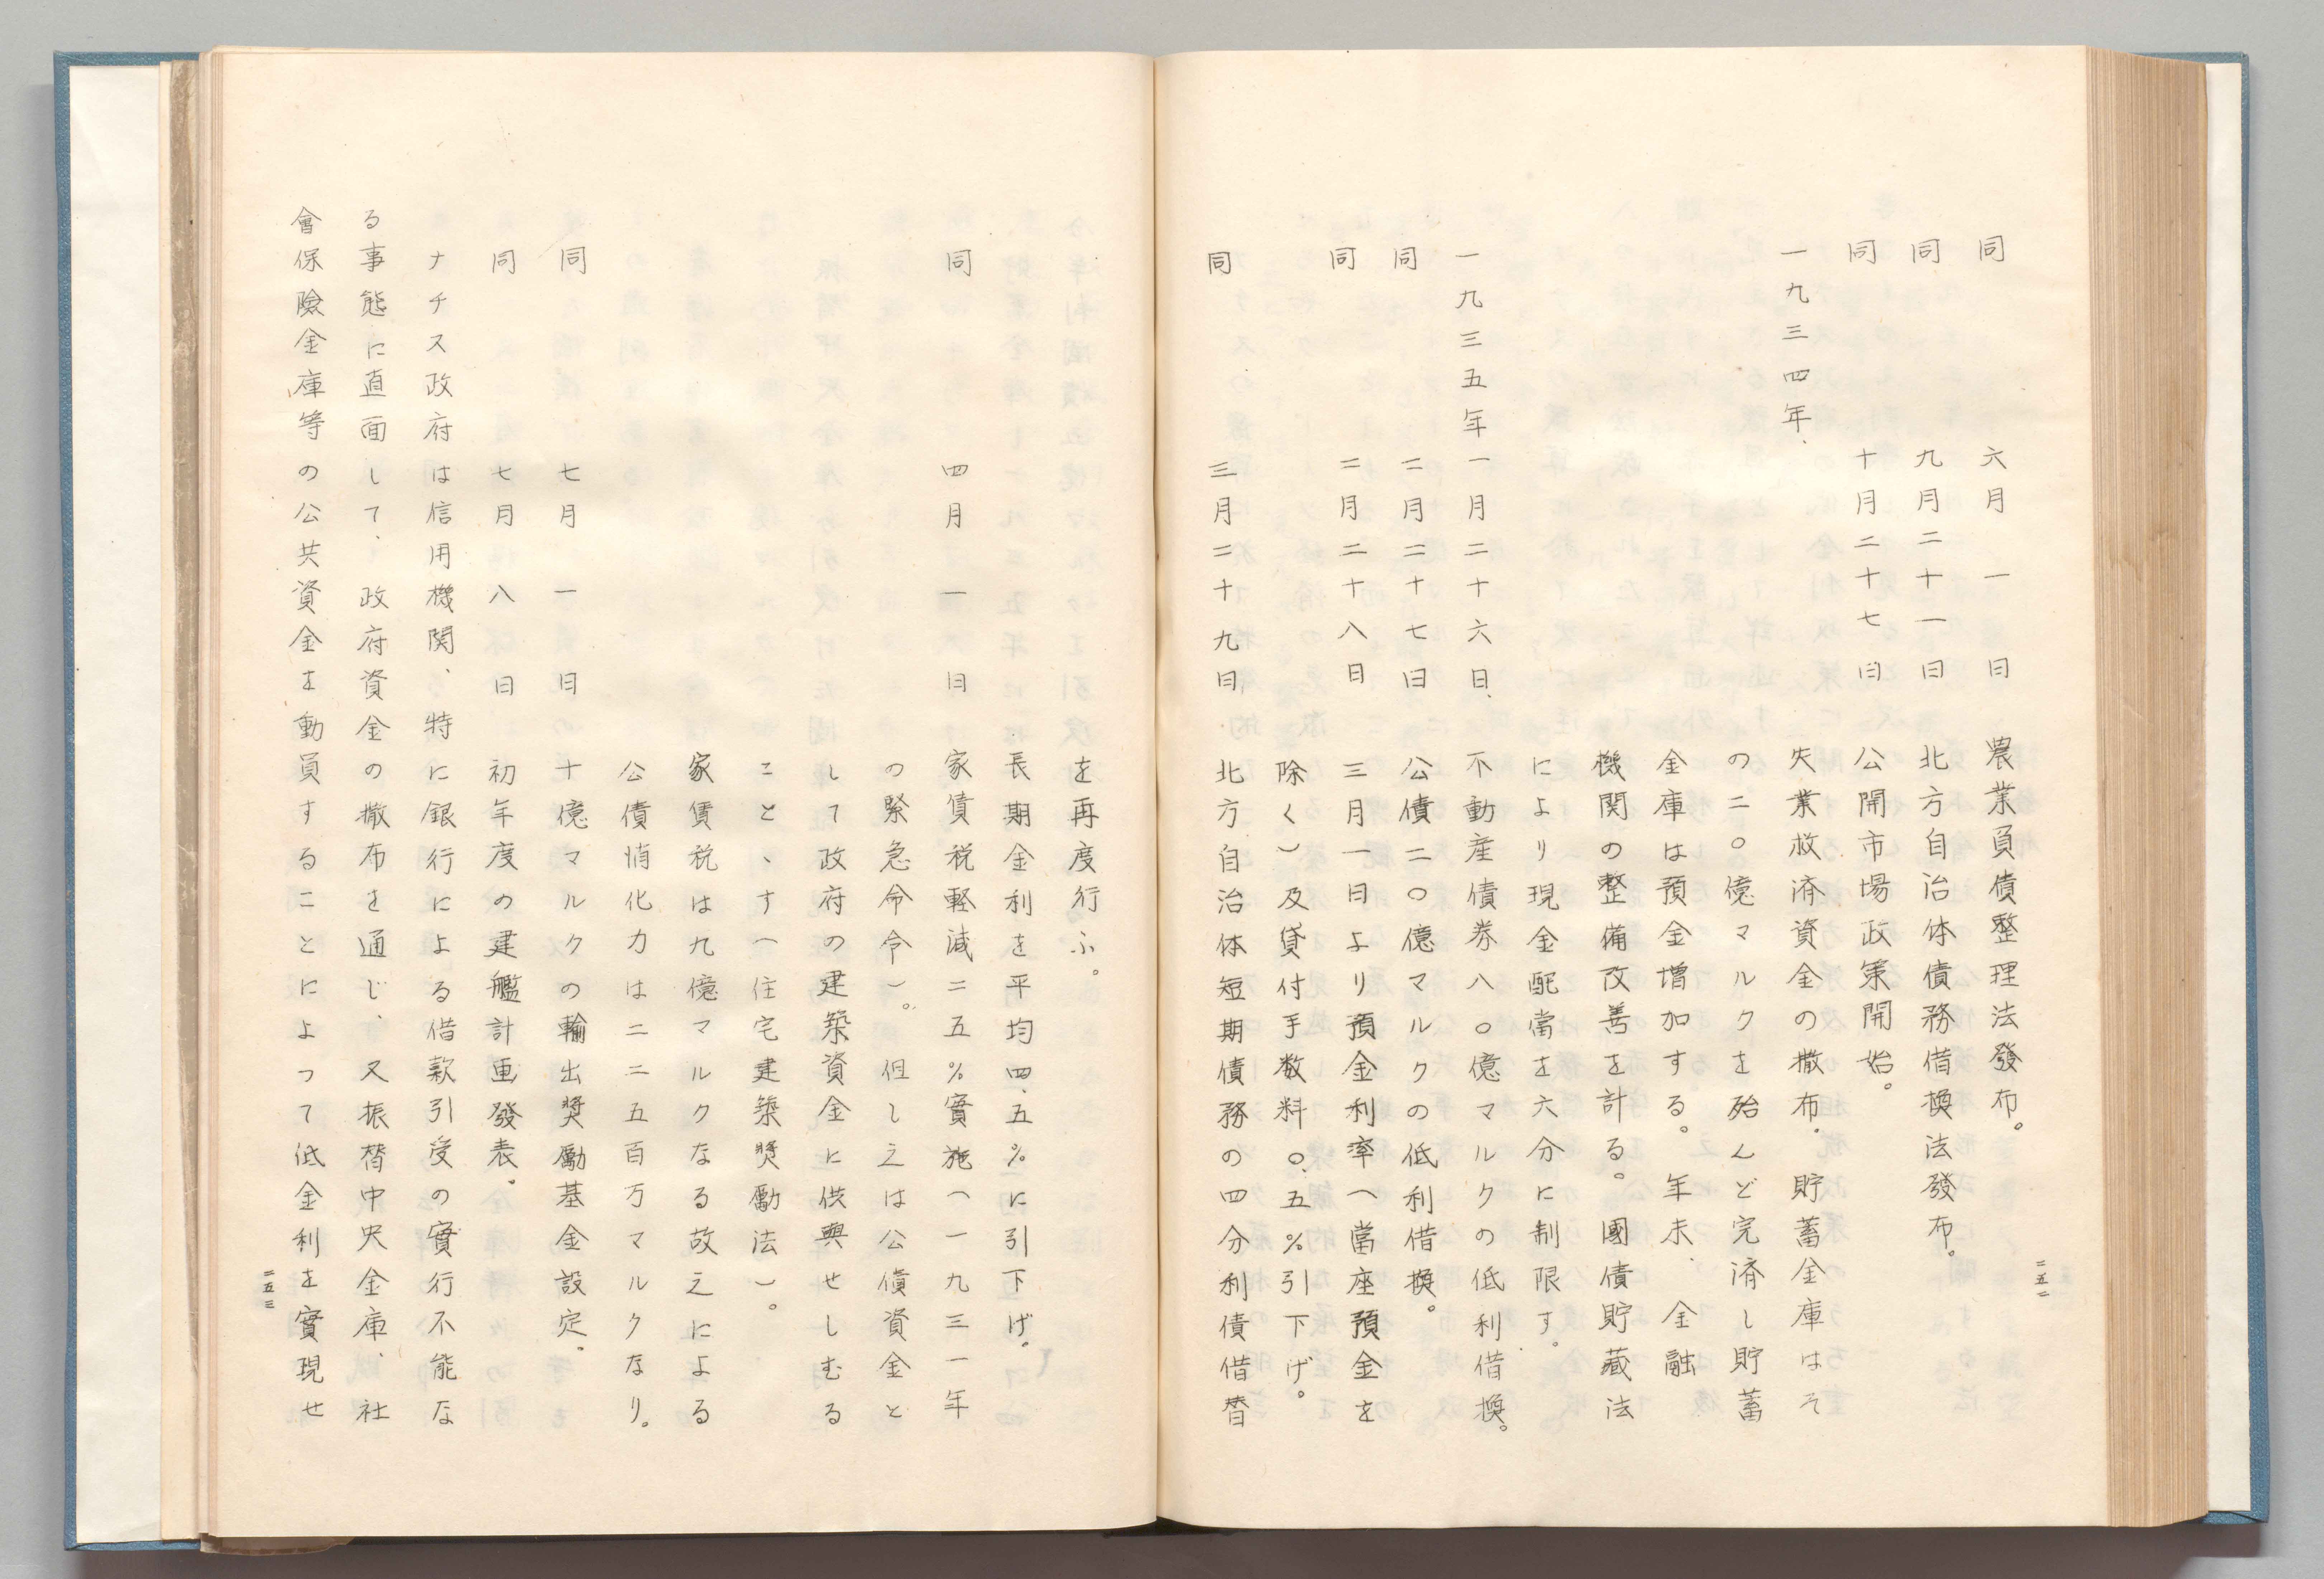 同　六月　一　日　農業負債整理法發布。
同　九月二十一日　北方自治体債務借換法發布。
同　十月二十七日　公開市場政策開始。
一九三四年、　失業救済資金の撒布．貯蓄金庫はそ
の二〇億マルクを殆んど完済し貯蓄
金庫は預金増加する。年末、金融
機関の整備改善を計る。國債貯藏法
により現金配當を六分に制限す。
一九三五年一月二十六日、不動産債券八〇億マルクの低利借換。
同　二月二十七日　公債二〇億マルクの低利借換。
同　二月二十八日　三月一日より預金利率（當座預金を
除く）及貸付手数料〇．五％引下げ。
同　三月二十九日．北方自治体短期債務の四分利債借替
二五二
を再度行ふ。
長期金利を平均四．五％に引下げ。
同　四月　一　日　家賃税軽減二五％實施（一九三一年
の緊急命令）。但し之は公債資金と
して政府の建築資金に供與せしむる
ことゝす（住宅建築奬勵法）。
家賃税は九億マルクなる故之による
公債悄化力は二二五百万マルクなり。
同　七月　一　日　十億マルクの輸出奬勵基金設定。
同　七月　八　日　初年度の建艦計画發表。
ナチス政府は信用機関、特に銀行による借款引受の實行不能な
る事態に直面して、政府資金の撒布を通じ、又振替中央金庫、社
會保險金庫等の公共資金を動員することによつて低金利を實現せ
二五三